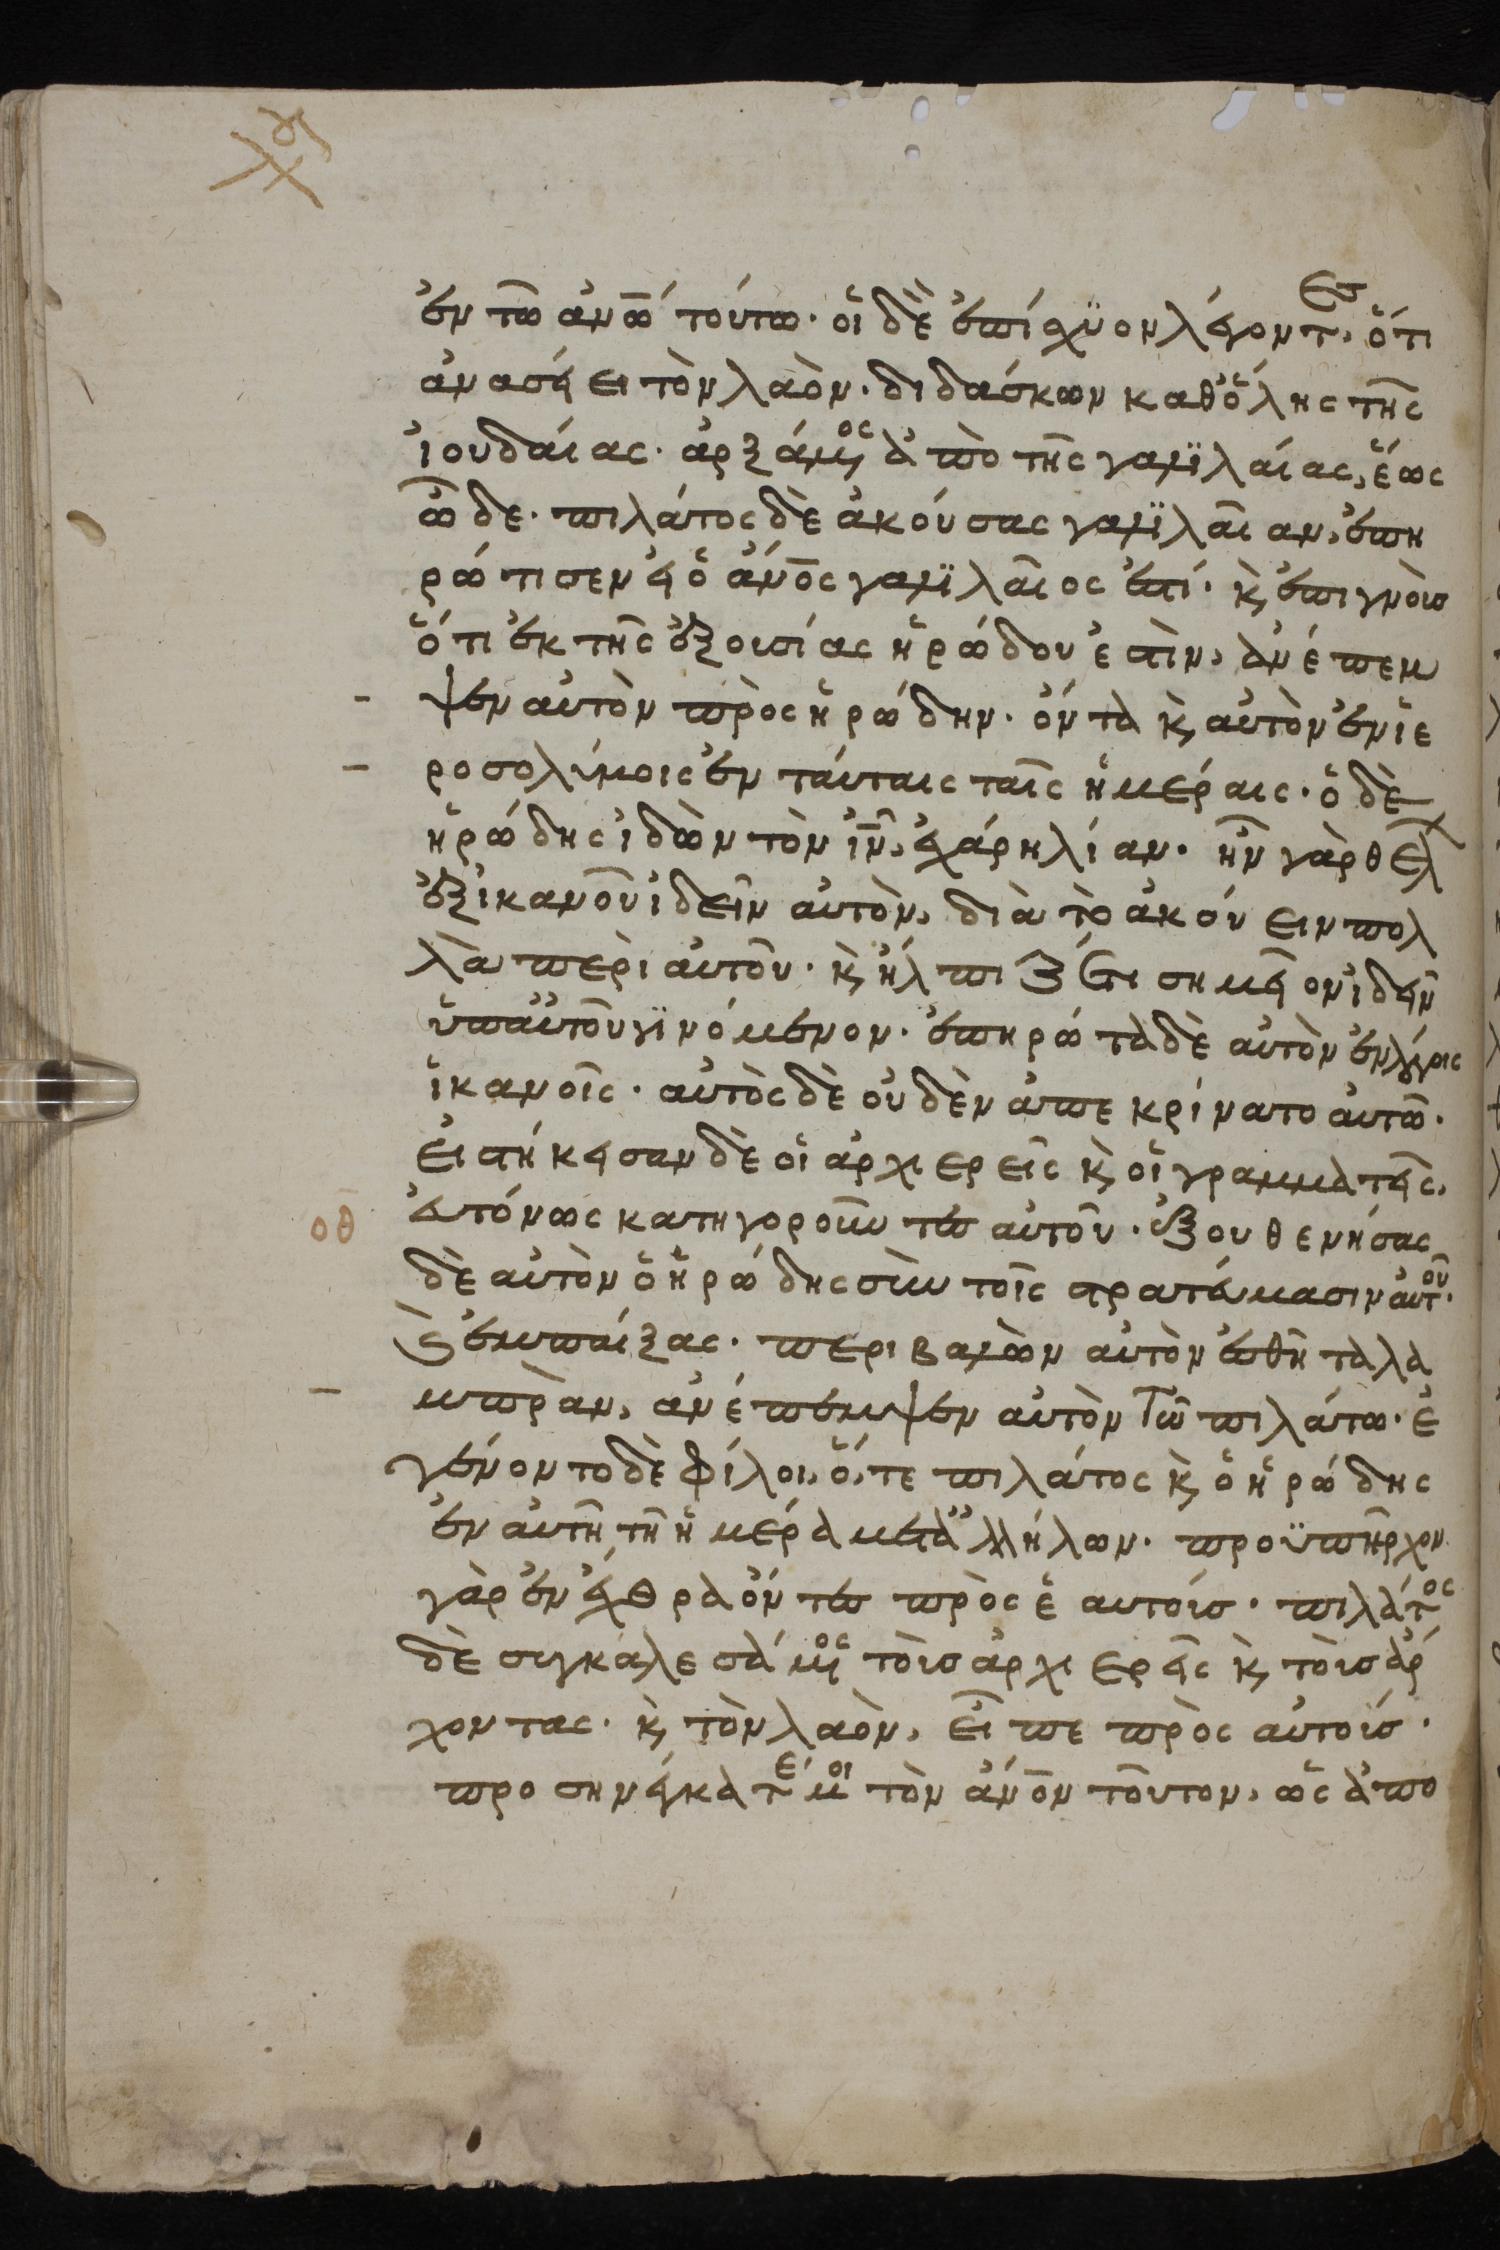 ἐν τῶ ἀνω τούτω· οἱ δὲ ἐπίσχϋον λέγοντες, ὅτι
ἀνασείει τὸν λαὸν· διδάσκων καθ' ὅλης τῆς
ἰουδαίας· ἀρξάμενος ἀπὸ τῆς γαλϊλαίας, ἕως
ὧδε· πιλάτος δὲ ἀκούσας γαλϊλαῖαν, ἐπη
ρώτισεν εἰ ὁ ἀνος γαλϊλαῖος ἐστί· κ ἐπιγνοὺσ
ὅτι ἐκ τῆς ἐξουσίας ἡρώδου ἐστὶν, ἀνέπεμ
ψεν αὐτὸν πρὸς ἡρώδην· ὄντα κ αὐτὸν ἐν ἱε
ροσολύμοις ἐν ταύταις ταῖς ἡμέραις· ὁ δὲ
ἡρώδης ἰδὼν τὸν ιν, ἐχάρη λίαν· ἦν γὰρ θελ
ἐξ ἱκανοῦ ἰδεῖν αὐτὸν, διὰ τὸ ἀκούειν πολ
λὰ περὶ αὐτοῦ· κ ἤλπιζέ τι σημεῖον ἰδεῖν
ὑπ' αὐτοῦ γϊνόμενον· ἐπηρώτα δὲ αὐτὸν ἐν λόγοις
ἱκανοῖς· αὐτὸς δὲ οὐδὲν ἀπεκρίνατο αὐτῶ·
εἱστήκεισαν δὲ οἱ ἀρχιερεῖς κ οἱ γραμματεῖς,
εὐτόνως κατηγοροῦντες αὐτοῦ· ἐξουθενήσας
οθ
δὲ αὐτὸν ὁ ἡρώδης σὺν τοῖς στρατεύμασιν αὐτοῦ·
κ ἐμπαίξας· περιβαλὼν αὐτὸν ἐσθῆτα λα
μπρὰν, ἀνέπεμψεν αὐτὸν τῶ πιλάτω· ἐ
γένοντο δὲ φίλοι, ὅ, τε πιλάτος κ ὁ ἡρώδης
ἐν αὐτῆ τῆ ἡμέρα μετ' ἀλλήλων· προϋπῆρχον
γὰρ ἐν ἔχθρα ὄντες πρὸς ἑαυτούσ· πιλάτος
δὲ συγκαλεσάμενος τοὺσ ἀρχιερεῖς κ τοὺσ ἄρ
χοντας· κ τὸν λαὸν, εἶπε πρὸς αὐτούσ·
προσηνέγκατέ μοι τὸν ἀνον τοῦτον, ὡς ἀπο